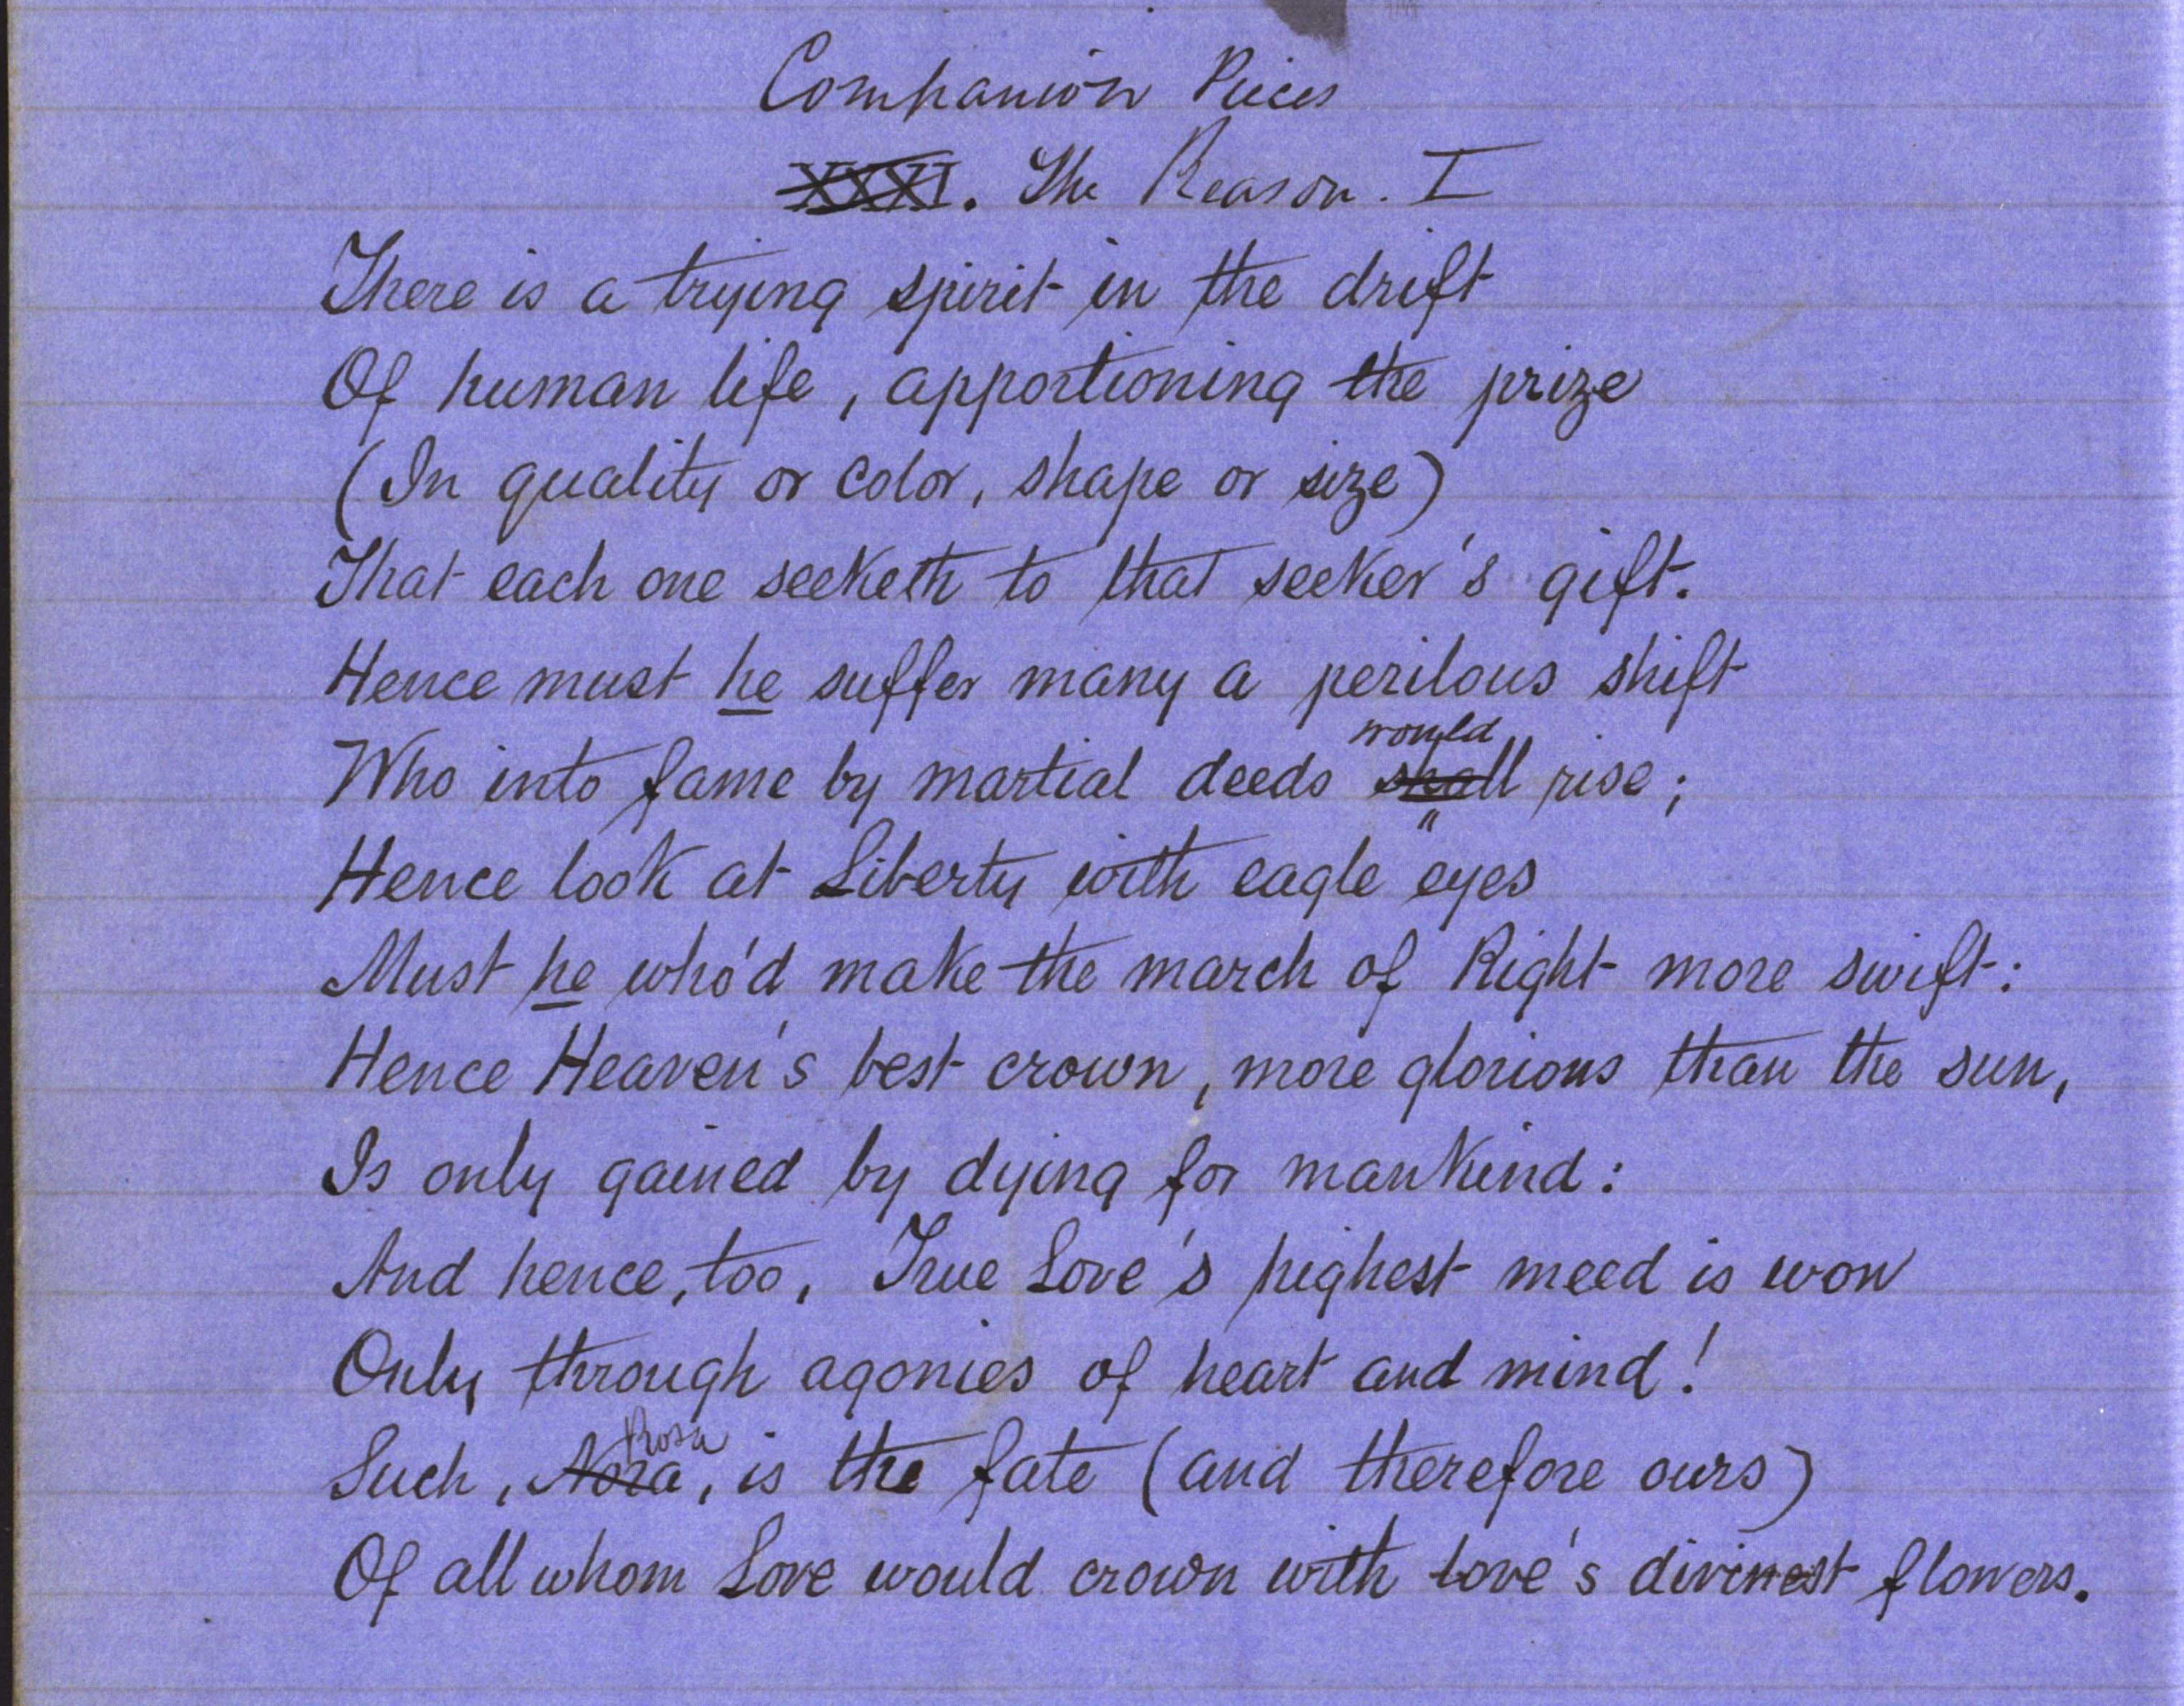 Companion Pieces
XXXI. The Reason. I
There is a trying spirit in the drift
Of human life, apportioning the prize
(In quality or color, shape or size)
That each one seeketh to that seeker's gift.
Hence must he suffer many a perilous shift
would
Who into fame by martial deeds shall rise;
Hence look at Liberty with eagle eyes
Must he who'd make the march of Right more swift:
Hence Heaven's best crown, more glorious than the sun,
Is only gained by dying for mankind:
And hence, too, True Love's highest meed is won
Only through agonies of heart and mind!
Rosa
Such, Nora, is the fate (and therefore ours)
Of all whom Love would crown with love's divinest flowers.